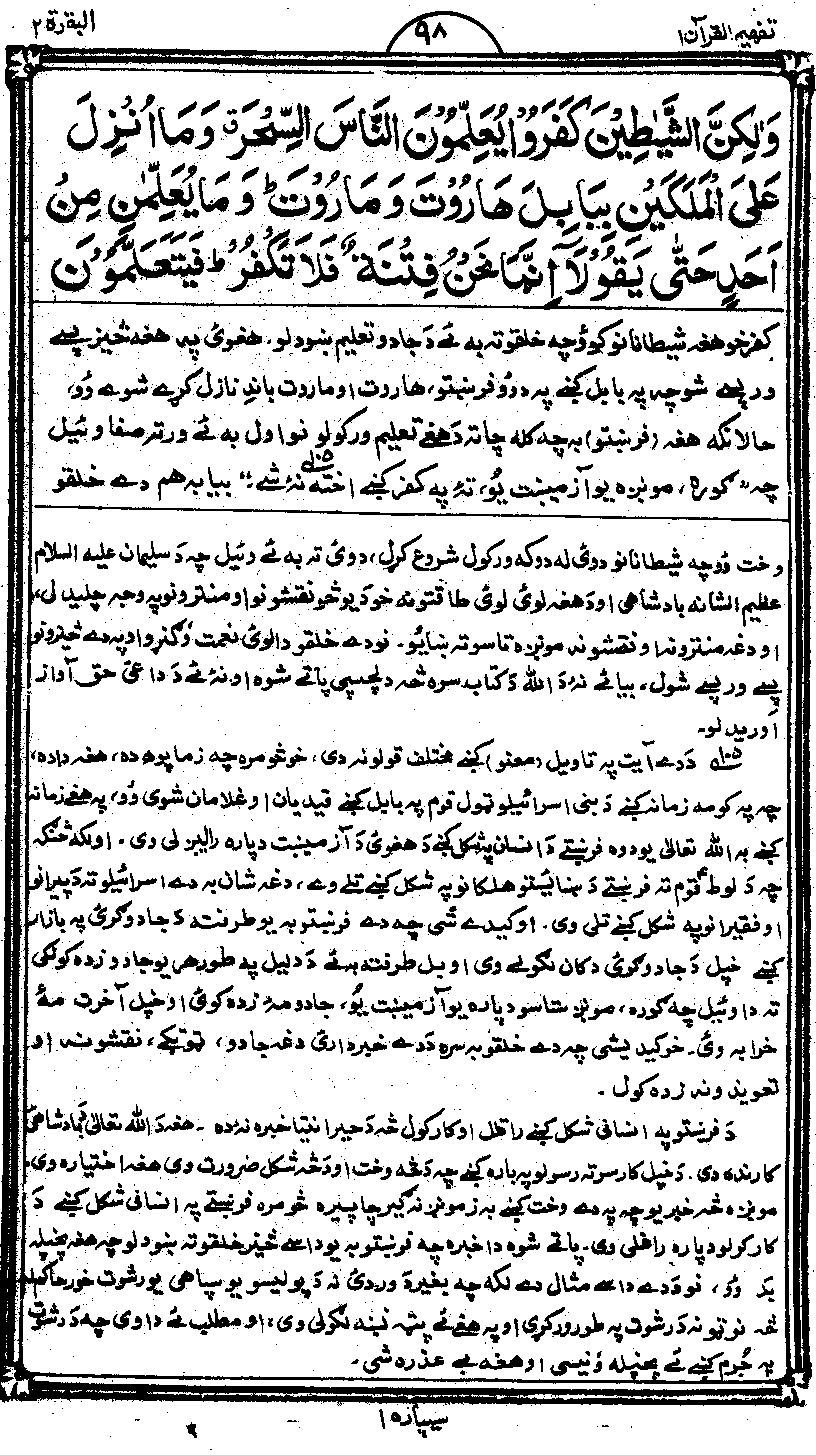 تفهيم القرآن ۱
۹۸
البقرة ۲
وَلٰكِنَّ الشَّيٰطِيْنَ كَفَرُوْا يُعَلِّمُوْنَ النَّاسَ السِّحْرَ ق وَمَآ اُنْزِلَ
عَلَى الْمَلَكَيْنِ بِبَابِلَ هَارُوْتَ وَمَارُوْتَ ط وَمَا يُعَلِّمٰنِ مِنْ
اَحَدٍ حَتّٰى يَقُوْلَآ اِنَّمَا نَحْنُ فِتْنَةٌ فَلَا تَكْفُرْ ط فَيَتَعَلَّمُوْنَ
کفر خو هغه شیطانانو کوؤ چه خلقو ته به ئے د جادو تعلیم ښودلو. هغوئ په هغه څیز پسے
ورپسے شو چه په بابل کښے په دوؤ فرښتو، هاروت او ماروت باندِ نازل کړے شوے وُو،
حالانکه هغه (فرښتو) به چه کله چا ته د هغے تعلیم ورکولو نو اول به ئے ورته صفا وئیل
چه "ګوره، مونږه یو آزمیښت یُو، تۀ په کفر کښے اخته نۀ شے" ۱۰۵ بیا به هم دے خلقو
وخت وُو چه شیطانانو دوئ له دوکه ورکول شروع کړل، دوئ ته به ئے وئیل چه د سلیمان علیه السلام
عظیم الشانه بادشاهی او د هغه لوئ لوئ طاقتونه خو د یو څو نقشونو او منترونو په وجه چلیدلی،
او دغه منترونه او نقشونه مونږه تاسو ته ښایُو. نو دے خلقو دا لوئ نعمت وګنړو او په دے څیزونو
پسے ورپسے شول، بیا ئے نۀ د الله د کتاب سره څه دلچسپی پاتے شوه او نۀ ئے د داعئ حق آواز
آوریدلو۔
۱۰۵ د دے آیت په تاویل (معنو) کښے مختلف قولونه دی، خو څومره چه زما پوهه ده، هغه دا ده،
چه په کومه زمانه کښے د بنی اسرائیلو ټول قوم په بابل کښے قیدیان او غلامان شوی وُو، په هغے زمانه
کښے به الله تعالیٰ یو دوه فرښتے د انسان په شکل کښے د هغوئ د آزمیښت دپاره رالیږلی وی. او لکه څنګه
چه د لوط ؑ قوم ته فرښتے د ښائستو هلکانو په شکل کښے تلے وے، دغه شان به دے اسرائیلو ته د پیرانو
او فقیرانو په شکل کښے تلی وی. او کیدے شی چه دے فرښتو به یو طرفته د جادوګرئ په بازار
کښے خپل د جادوګرئ دکان لګولے وی او بل طرفته به ئے د دلیل په طور هر یو جادو زده کونکی
ته دا وئیل چه ګوره، مونږ ستاسو دپاره یو آزمیښت یُو، جادو مۀ زده کوئ او خپل آخرت مۀ
خرابه وئ. خو کیدیشی چه دے خلقو به سره د دے خبرداری دغه جادو، ټوټکے، نقشونه او
تعویذونه زده کول.
د فرښتو په انسانی شکل کښے راتلل او کار کول څه د حیرانتیا خبره نۀ ده. هغه د الله تعالیٰ د بادشاهئ
کارنده دی. د خپل کار سر ته رسولو په باره کښے چه د څه وخت او د څه شکل ضرورت وی هغه اختیاره وی.
مونږه څه خبر یو چه په دے وخت کښے به زمونږ نه ګیر چاپیره څومره فرښتے په انسانی شکل کښے د
کار کولو دپاره راغلی وی. پاتے شوه دا خبره چه فرښتو به یو داسے څیز خلقو ته ښودلو چه هغه پخپله
بد وُو، نو د دے داسے مثال دے لکه چه بغیر د وردئ نه د پولیسو یو سپاهی یو رشوت خور حاکم له
څه نوټونه د رشوت په طور ورکړی او په هغے ئے پټه نښه لګولی وی، او مطلب ئے دا وی چه د رشوت
په جُرم کښے ئے پخپله ونیسی او هغه بے عذره شی۔
سیپاره ۱